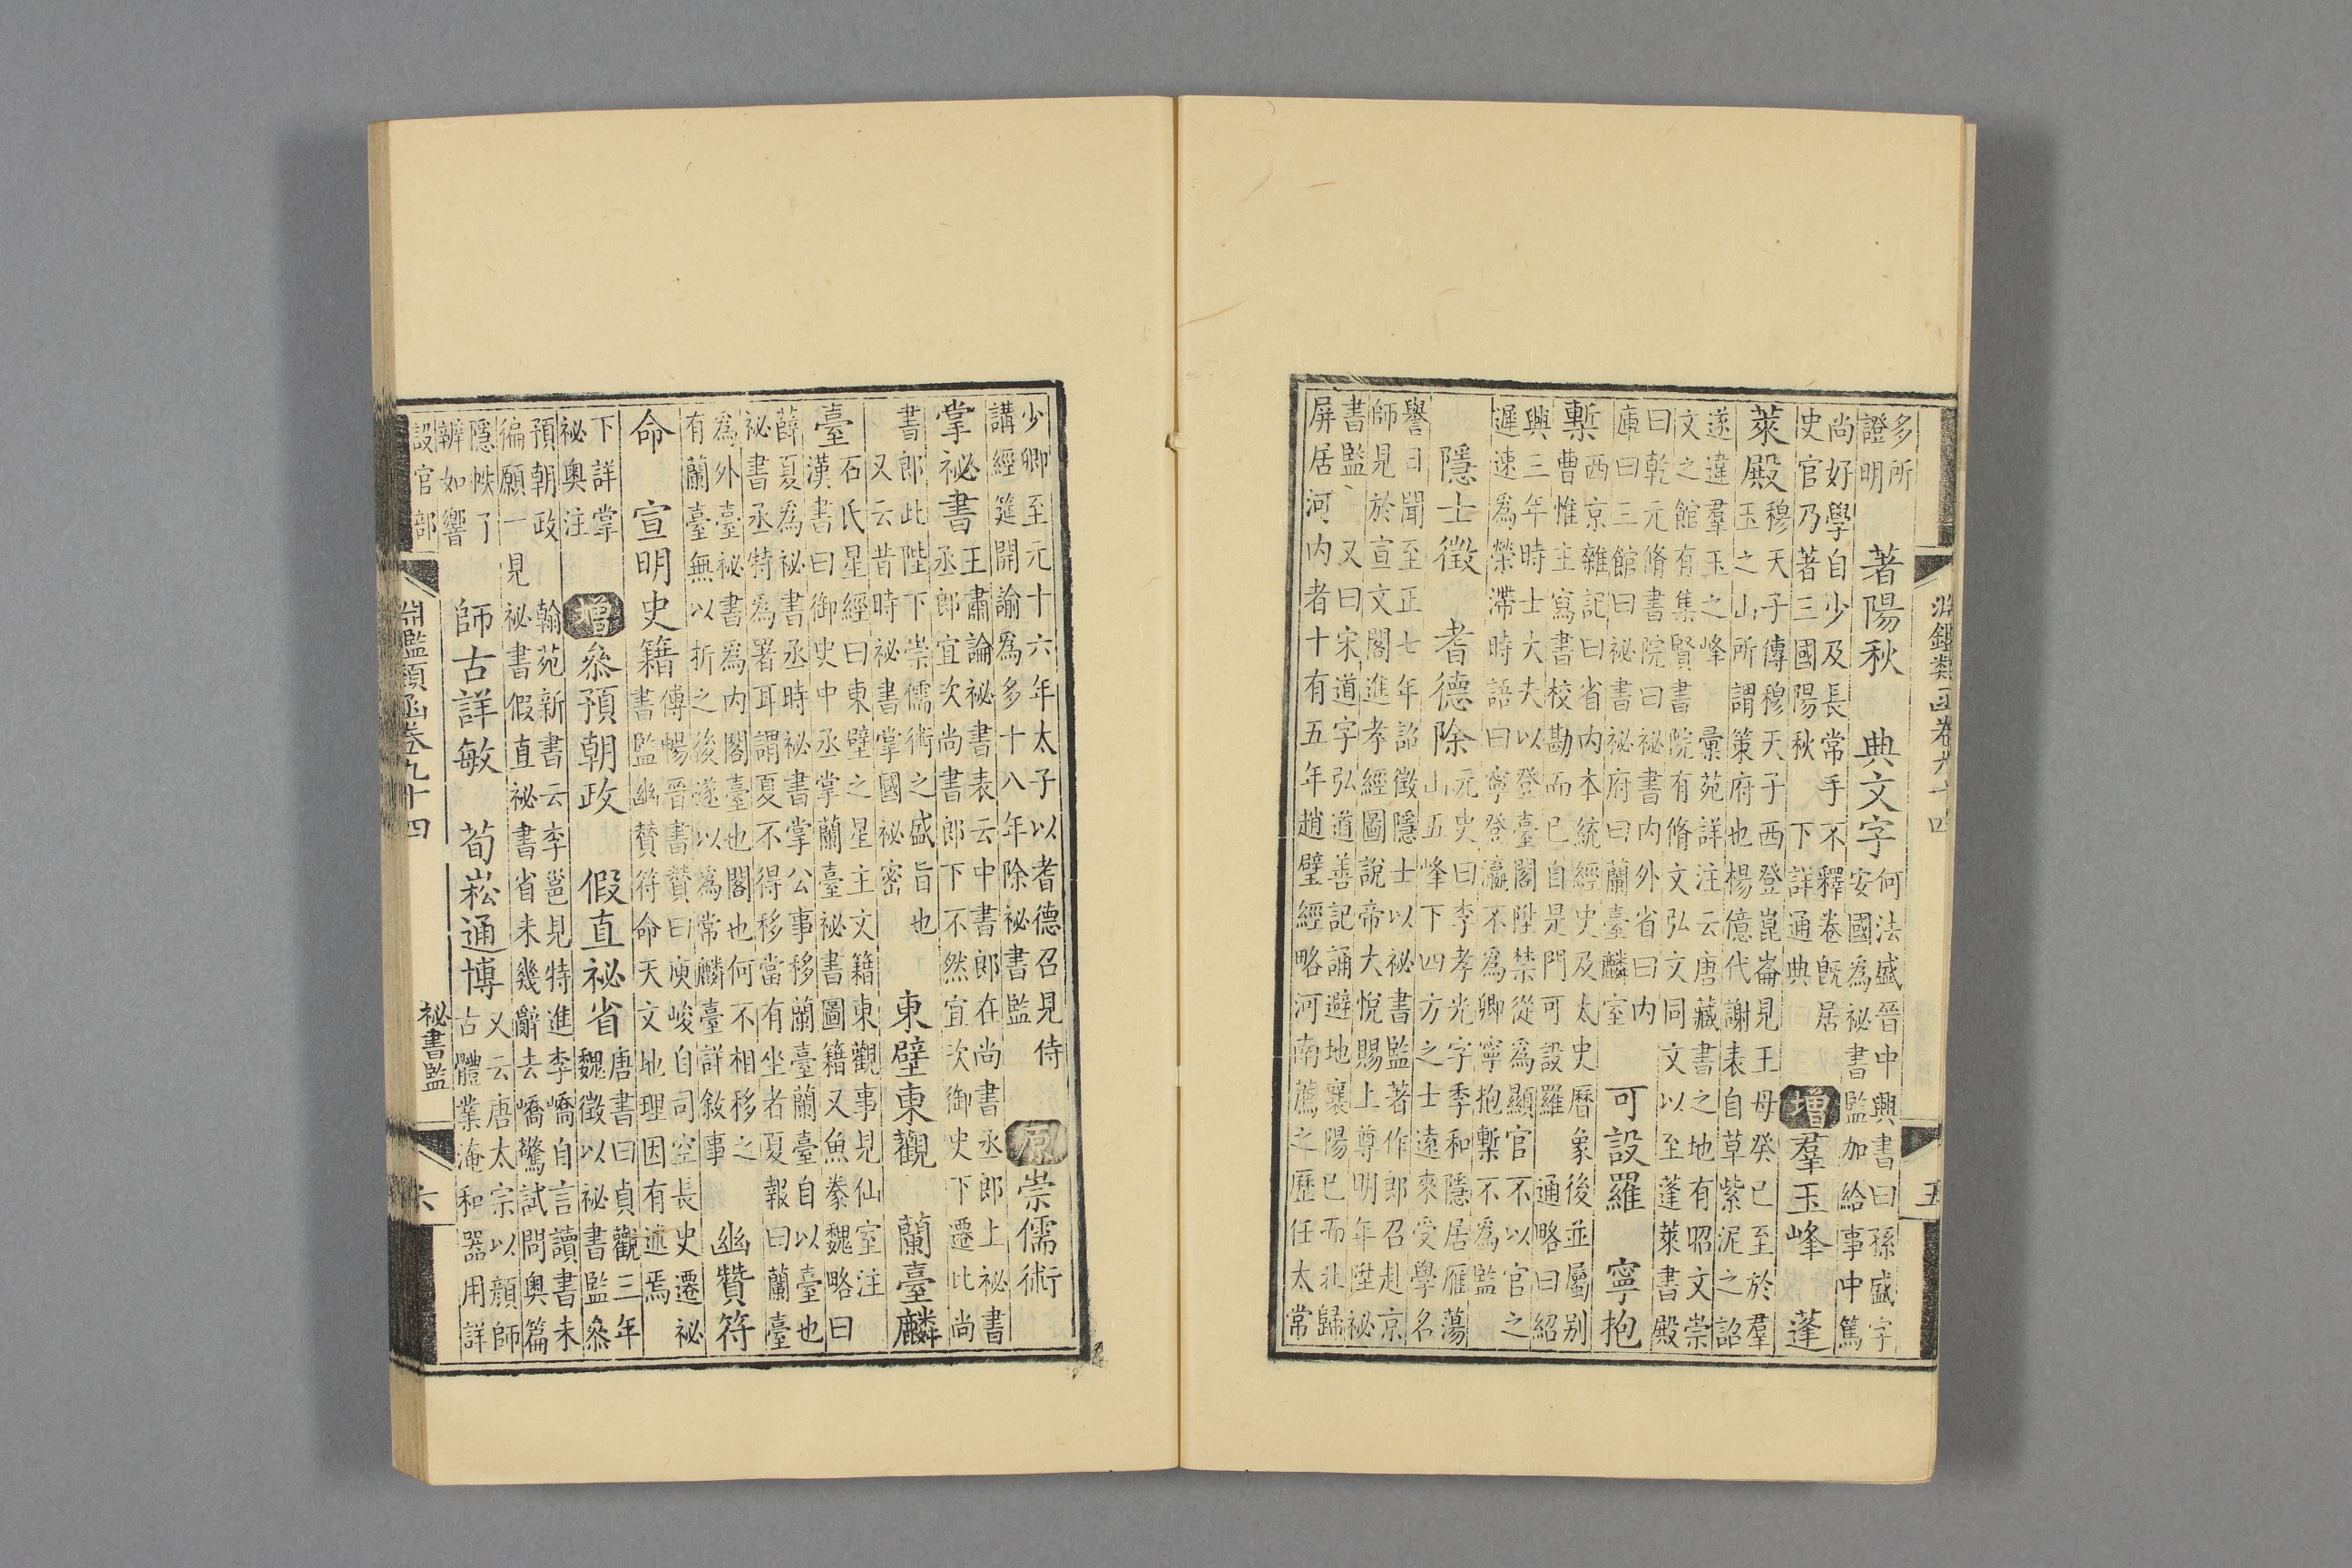 淵鑑類函卷九十四 五
多所證明 著陽秋 典文字 何法盛晉中興書曰孫盛字安國為祕書監加給事中篤
尚好學自少及長常手不釋卷既居史官乃著三國陽秋 下詳通典 增 羣玉峰 蓬
萊殿 穆天子傳穆天子西登崑崙見王母癸巳至於羣玉之山所謂策府也楊億代謝表自草紫泥之詔
遂違羣玉之峰 彙苑詳注云唐藏書之地有昭文崇文之館有集賢書院有脩文弘文同文以至蓬萊書殿
曰乾元脩書院曰祕書內外省曰內庫曰三館曰祕書祕府曰蘭臺麟室 可設羅 寧抱
槧 西京雜記曰省內本統經史及太史曆象後並屬别曹惟主寫書校勘而已自是門可設羅 通略曰紹
興三年時士大夫以登臺閣陞禁從為顯官不以官之遲速為榮滯時語曰寧登瀛不為卿寧抱槧不為監
隱士徵 耆德除 元史曰李孝光字季和隱居雁蕩山五峰下四方之士遠來受學名
譽日聞至正七年詔徵隱士以祕書監著作郎召赴京師見於宣文閣進孝經圖說帝大悅賜上尊明年陞祕
書監 又曰宋道字弘道善記誦避地襄陽已而北歸屏居河内者十有五年趙璧經略河南薦之歷任太常
少卿至元十六年太子以耆德召見侍講經筵開諭為多十八年除祕書監 原 崇儒術
掌祕書 王肅論祕書表云中書郎在尚書丞郎上祕書丞郎宜次尚書郎下不然宜次御史下遷比尚
書郎此陛下崇儒術之盛旨也 又云昔時祕書掌國祕密 東壁東觀 蘭臺麟
臺 石氏星經曰東壁之星主文籍東觀事見仙室注漢書曰御史中丞掌蘭臺祕書圖籍又魚豢魏略曰
薛夏為祕書丞時祕書掌公事移蘭臺蘭臺自以臺也祕書丞特為署耳謂夏不得移當有坐者夏報曰蘭臺
為外臺祕書為內閣臺也閣也何不相移之有蘭臺無以折之後遂以為常麟臺詳敘事 幽贊符
命 宣明史籍 傅暢晉書贊曰庾峻自司空長史遷祕書監幽贊符命天文地理因有述焉
下詳掌祕奧注 增 叅預朝政 假直祕省 唐書曰貞觀三年魏徵以祕書監叅
預朝政 翰苑新書云李邕見特進李嶠自言讀書未徧願一見祕書假直祕書省未幾辭去嶠驚試問奧篇
隱帙了辨如響 師古詳敏 荀崧通博 又云唐太宗以顏師古體業淹和器用詳
設官部 淵鑑類函卷九十四 祕書監 六